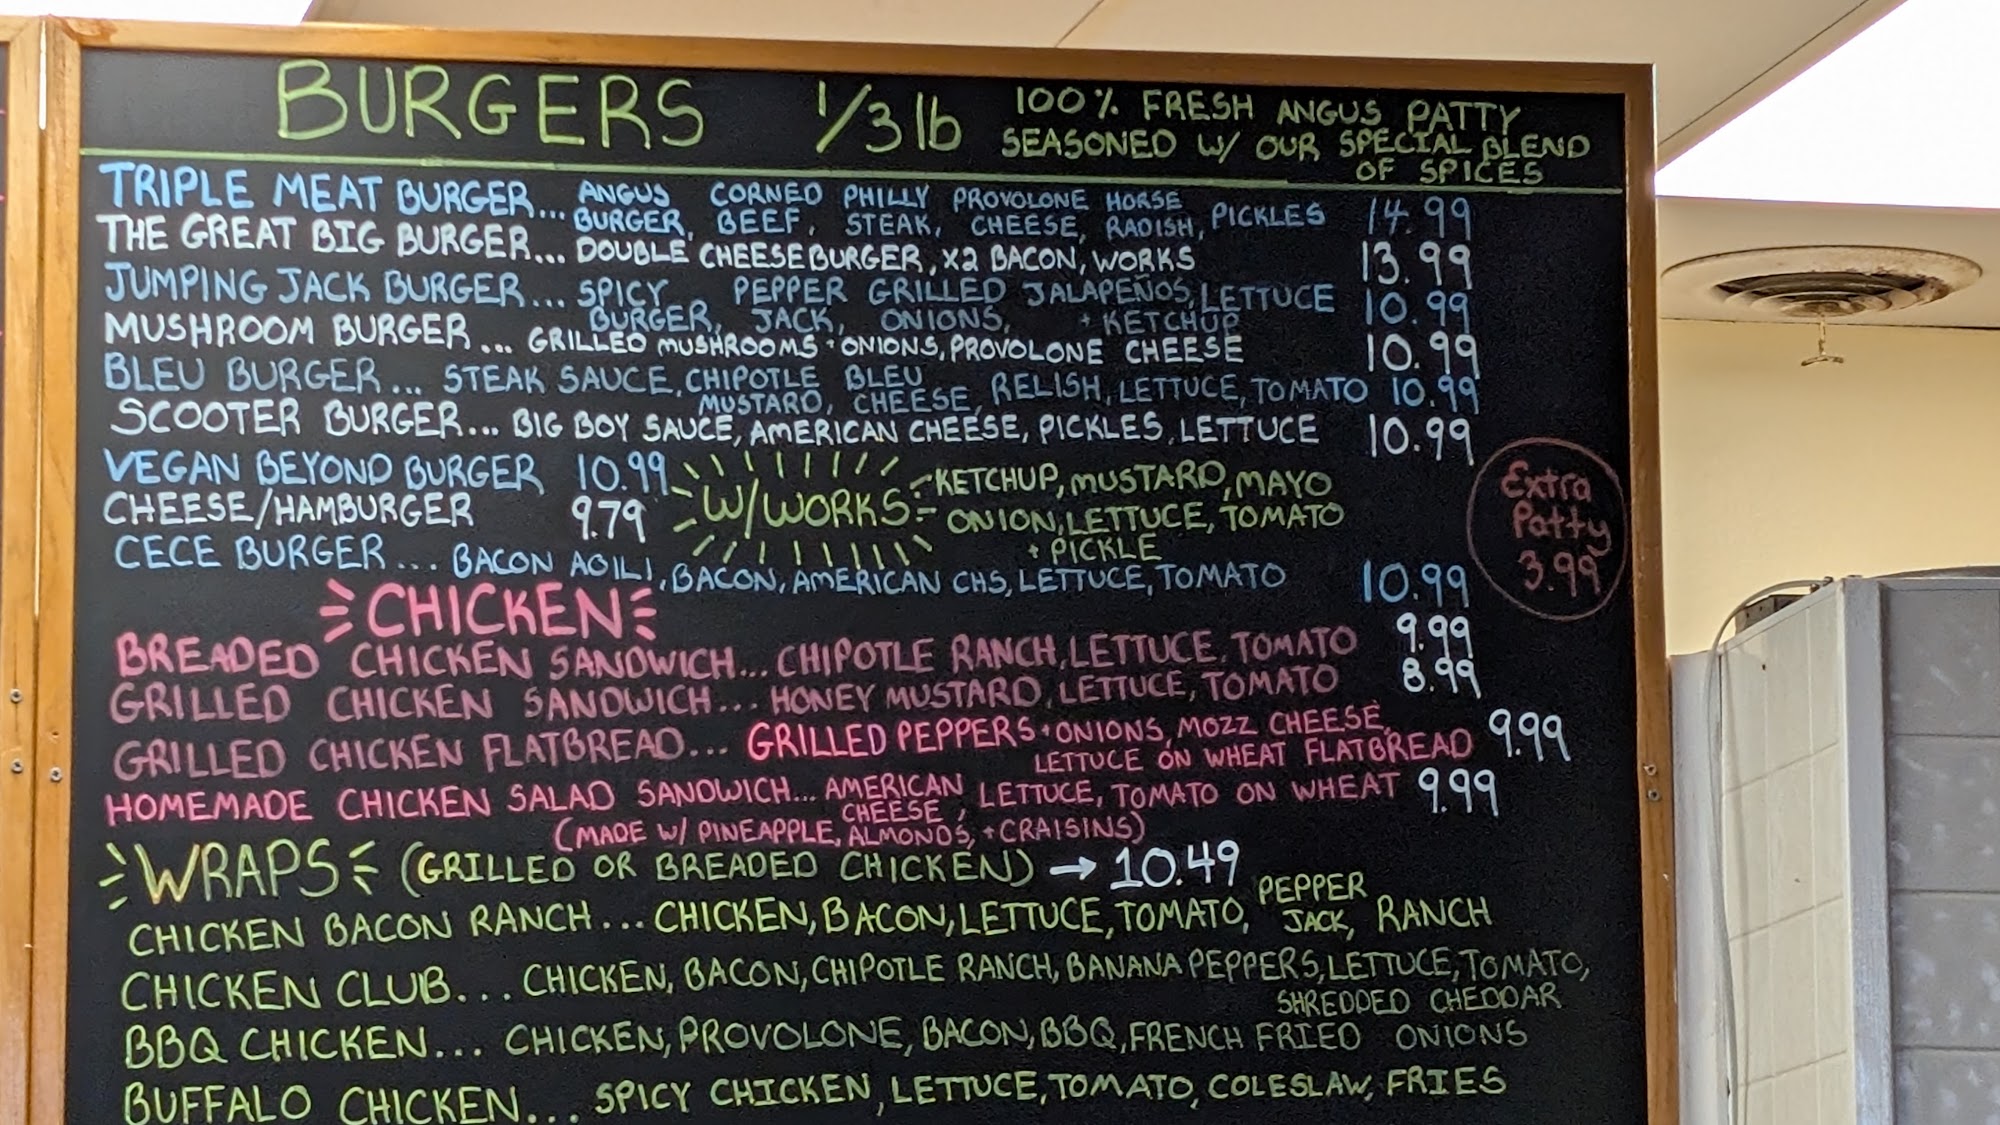 BURGERS 1/3 lb 100% FRESH ANGUS PATTY SEASONED W/ OUR SPECIAL BLEND OF SPICES
TRIPLE MEAT BURGER... ANGUS BURGER, CORNED BEEF, PHILLY STEAK, PROVOLONE CHEESE, HORSE RADISH, PICKLES 14.99
THE GREAT BIG BURGER... DOUBLE CHEESEBURGER, X2 BACON, WORKS 13.99
JUMPING JACK BURGER... SPICY BURGER, PEPPER JACK, GRILLED ONIONS, JALAPEÑOS, LETTUCE + KETCHUP 10.99
MUSHROOM BURGER... GRILLED MUSHROOMS + ONIONS, PROVOLONE CHEESE 10.99
BLEU BURGER... STEAK SAUCE, CHIPOTLE MUSTARD, BLEU CHEESE, RELISH, LETTUCE, TOMATO 10.99
SCOOTER BURGER... BIG BOY SAUCE, AMERICAN CHEESE, PICKLES, LETTUCE 10.99
VEGAN BEYOND BURGER 10.99
CHEESE/HAMBURGER 9.79
W/WORKS: KETCHUP, MUSTARD, MAYO
ONION, LETTUCE, TOMATO
+ PICKLE
Extra
Patty
3.99
CECE BURGER... BACON AOILI, BACON, AMERICAN CHS, LETTUCE, TOMATO 10.99
CHICKEN
BREADED CHICKEN SANDWICH... CHIPOTLE RANCH, LETTUCE, TOMATO 9.99
GRILLED CHICKEN SANDWICH... HONEY MUSTARD, LETTUCE, TOMATO 8.99
GRILLED CHICKEN FLATBREAD... GRILLED PEPPERS + ONIONS, MOZZ CHEESE, LETTUCE ON WHEAT FLATBREAD 9.99
HOMEMADE CHICKEN SALAD SANDWICH... AMERICAN CHEESE, LETTUCE, TOMATO ON WHEAT 9.99
(MADE W/ PINEAPPLE, ALMONDS, + CRAISINS)
WRAPS (GRILLED OR BREADED CHICKEN) → 10.49
CHICKEN BACON RANCH... CHICKEN, BACON, LETTUCE, TOMATO, PEPPER JACK, RANCH
CHICKEN CLUB... CHICKEN, BACON, CHIPOTLE RANCH, BANANA PEPPERS, LETTUCE, TOMATO, SHREDDED CHEDDAR
BBQ CHICKEN... CHICKEN, PROVOLONE, BACON, BBQ, FRENCH FRIED ONIONS
BUFFALO CHICKEN... SPICY CHICKEN, LETTUCE, TOMATO, COLESLAW, FRIES